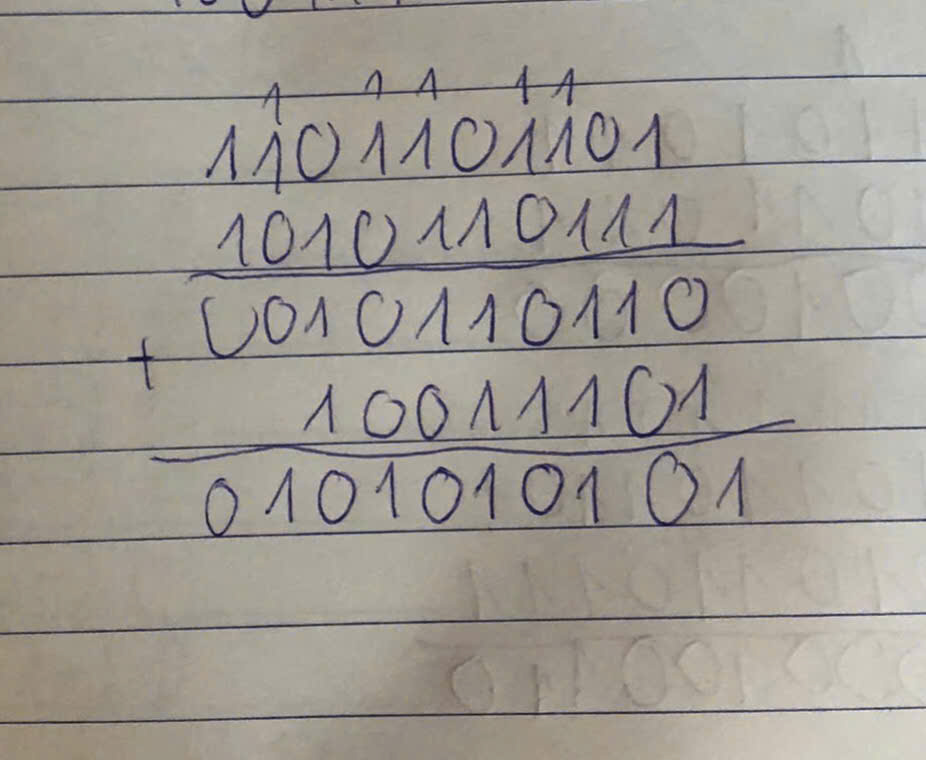 1 1 1 1 1
11011011101
1010110111
0010110110
+
10011101
0101010101 01